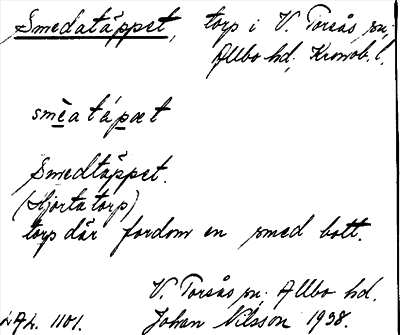 Smedatäppet, torp i V. Torsås sn,
Allbo hd, Kronob. l.
smèatápæt
Smedtäppet.
(Hjortatorp)
torp där fordom en smed bott.
V. Torsås sn, Allbo hd.
LAL. 1101. Johan Nilsson 1938.